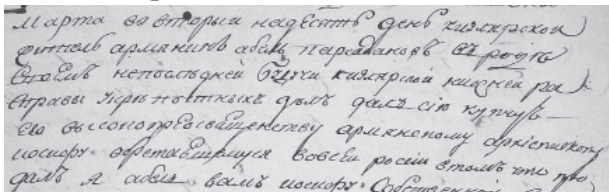 Марта во вторыи надесять день кизлярской
житель арманинъ абелъ парсадановъ въ родѣ
своемъ непослѣдней будучи кизлярской нижней ра
справы у крѣпостныхъ дѣлъ далъ сію купчую
его высокопреосвященству армянскому архіепископу
иосифу обретающемуся во всеи росіи в томъ что про
далъ я абелъ вамъ иосифу собственной